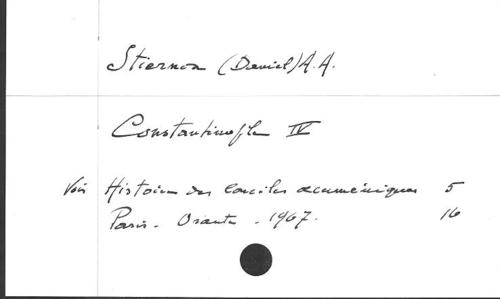 Stiernon (Daniel) A.A.
Constantinople IV
Voir Histoire des conciles œcuméniques 5
Paris - Orante - 1967. 16